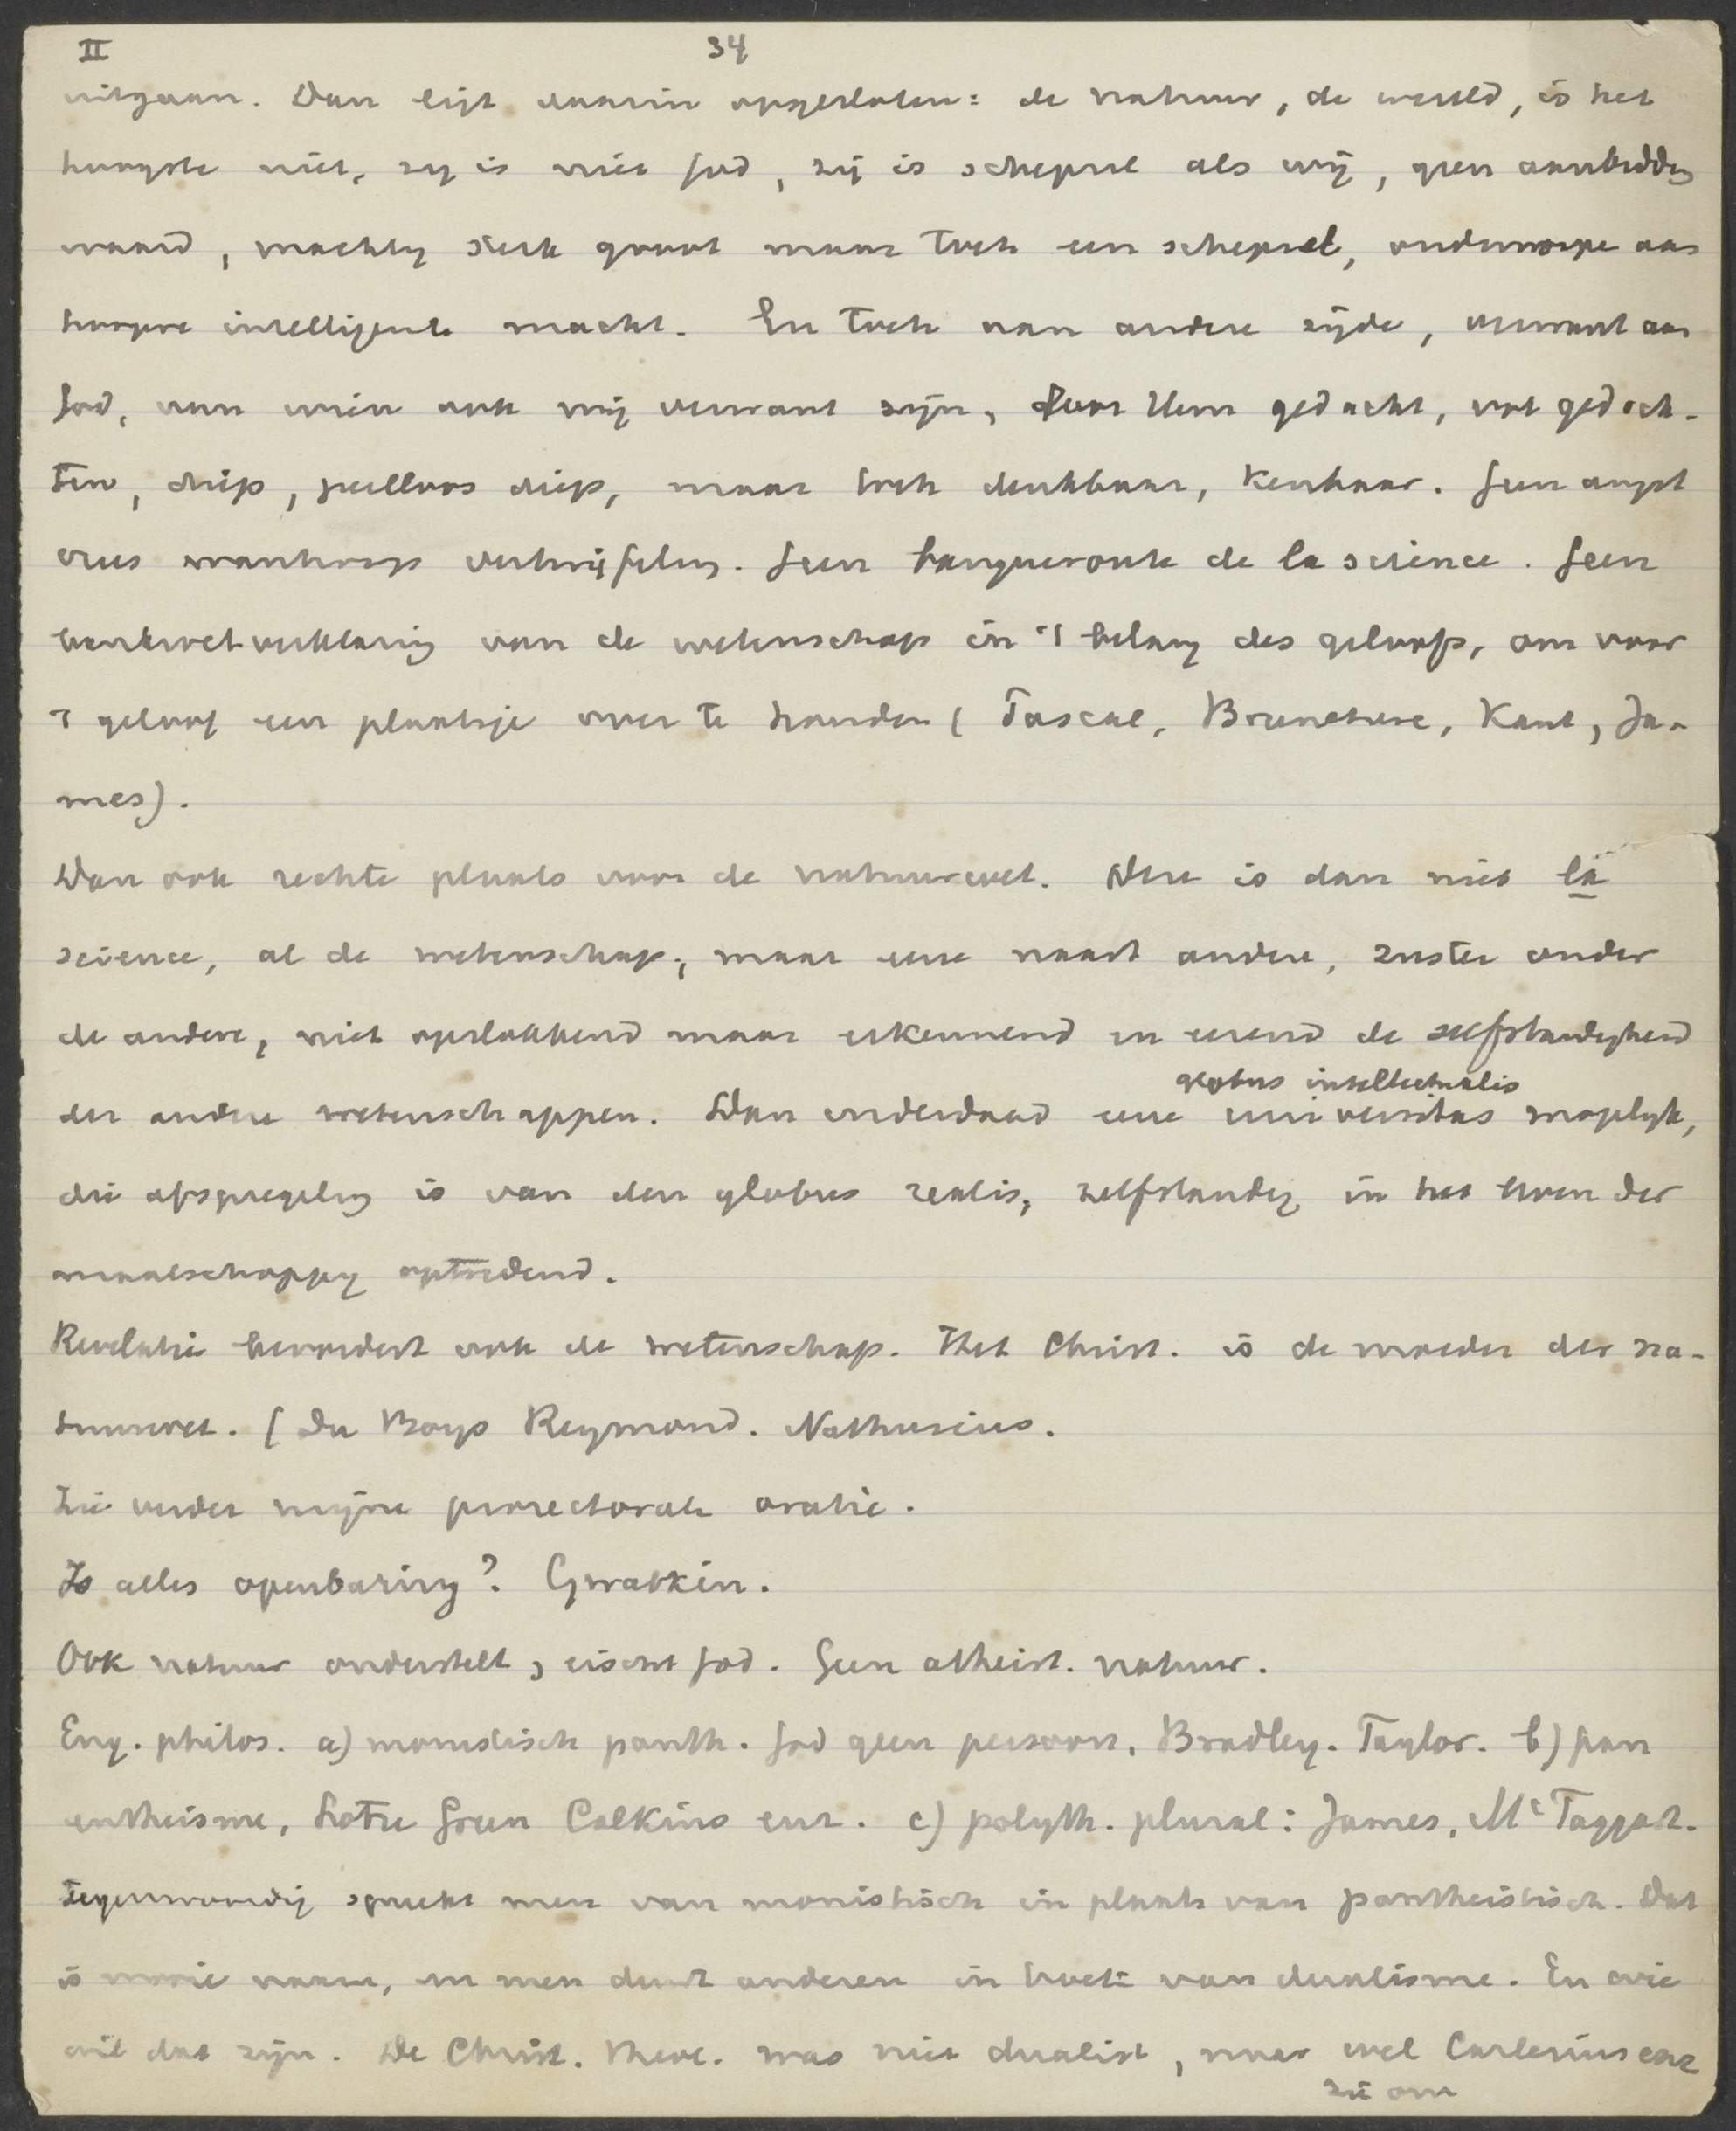 II 34
uitgaan. Dan ligt daarin opgesloten: de natuur, de wereld, is het
hoogste niet, zij is niet God, zij is schepsel als wij, geen aanbidding
waard, machtig sterk groot maar toch een schepsel, onderworpe aan
hoogere intelligente macht. En toch van andere zijde, verwant aan
God, aan wien ook wij verwant zijn, door Hem gedacht, vol gedach-
ten, diep, peilloos diep, maar toch denkbaar, kenbaar. Geen angst
vrees wanhoop vertwijfeling. Geen banqueroute de la science. Geen
bankroetverklaring van de wetenschap in 't belang des geloofs, om voor
't geloof een plaatsje over te houden (Pascal, Brunetiere, Kant, Ja-
mes).
Dan ook rechte plaats voor de natuurwet. Deze is dan niet la
science, al de wetenschap, maar eene naast andere, zuster onder
de andere, niet opslokkend maar erkennend en eerend de zelfstandigheid
globus intellectualis
der andere wetenschappen. Dan inderdaad eene universitas mogelijk,
die afspiegeling is van den globus realis, zelfstandig in het leven der
maatschappij optredend.
Revelatie bevordert ook de wetenschap. Het Christ. is de moeder der na-
tuurwet. (Du Boys Reymond. Nathusius.
Zie verder mijne prorectorale oratie.
Is alles openbaring? Gwatkin.
Ook natuur onderstelt, eischt God. Geen atheist. natuur.
Eng. philos. a) monistisch panth. God geen persoon, Bradley. Taylor. b) pan
entheisme, Lotze Green Calkins enz. c) polyth. plural: James, McTaggart.
Tegenwoordig spreekt men van monistisch in plaats van pantheistisch. Dat
is mooie naam, en men duwt anderen in hoek van dualisme. En wie
wil dat zijn. De Christ. theol. was niet dualist, maar wel Cartesius enz
zie om